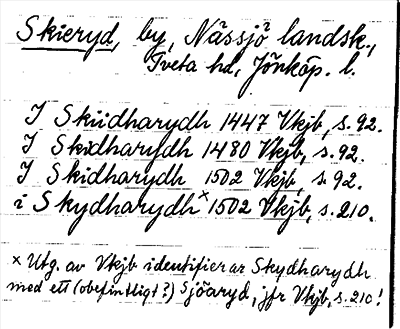 Skieryd, by, Nässjö landsk.,
Tveta hd, Jönköp. l.
I Skiidharydh 1447 Vkjb, s. 92.
I Skidharydh 1480 Vkjb, s. 92.
I Skidharydh 1502 Vkjb, s. 92.
i Skydharydh × 1502 Vkjb, s. 210.
× Utg. av Vkjb identifierar Skydharydh
med ett (obefintligt?) Sjöaryd, jfr Vkjb, s. 210!